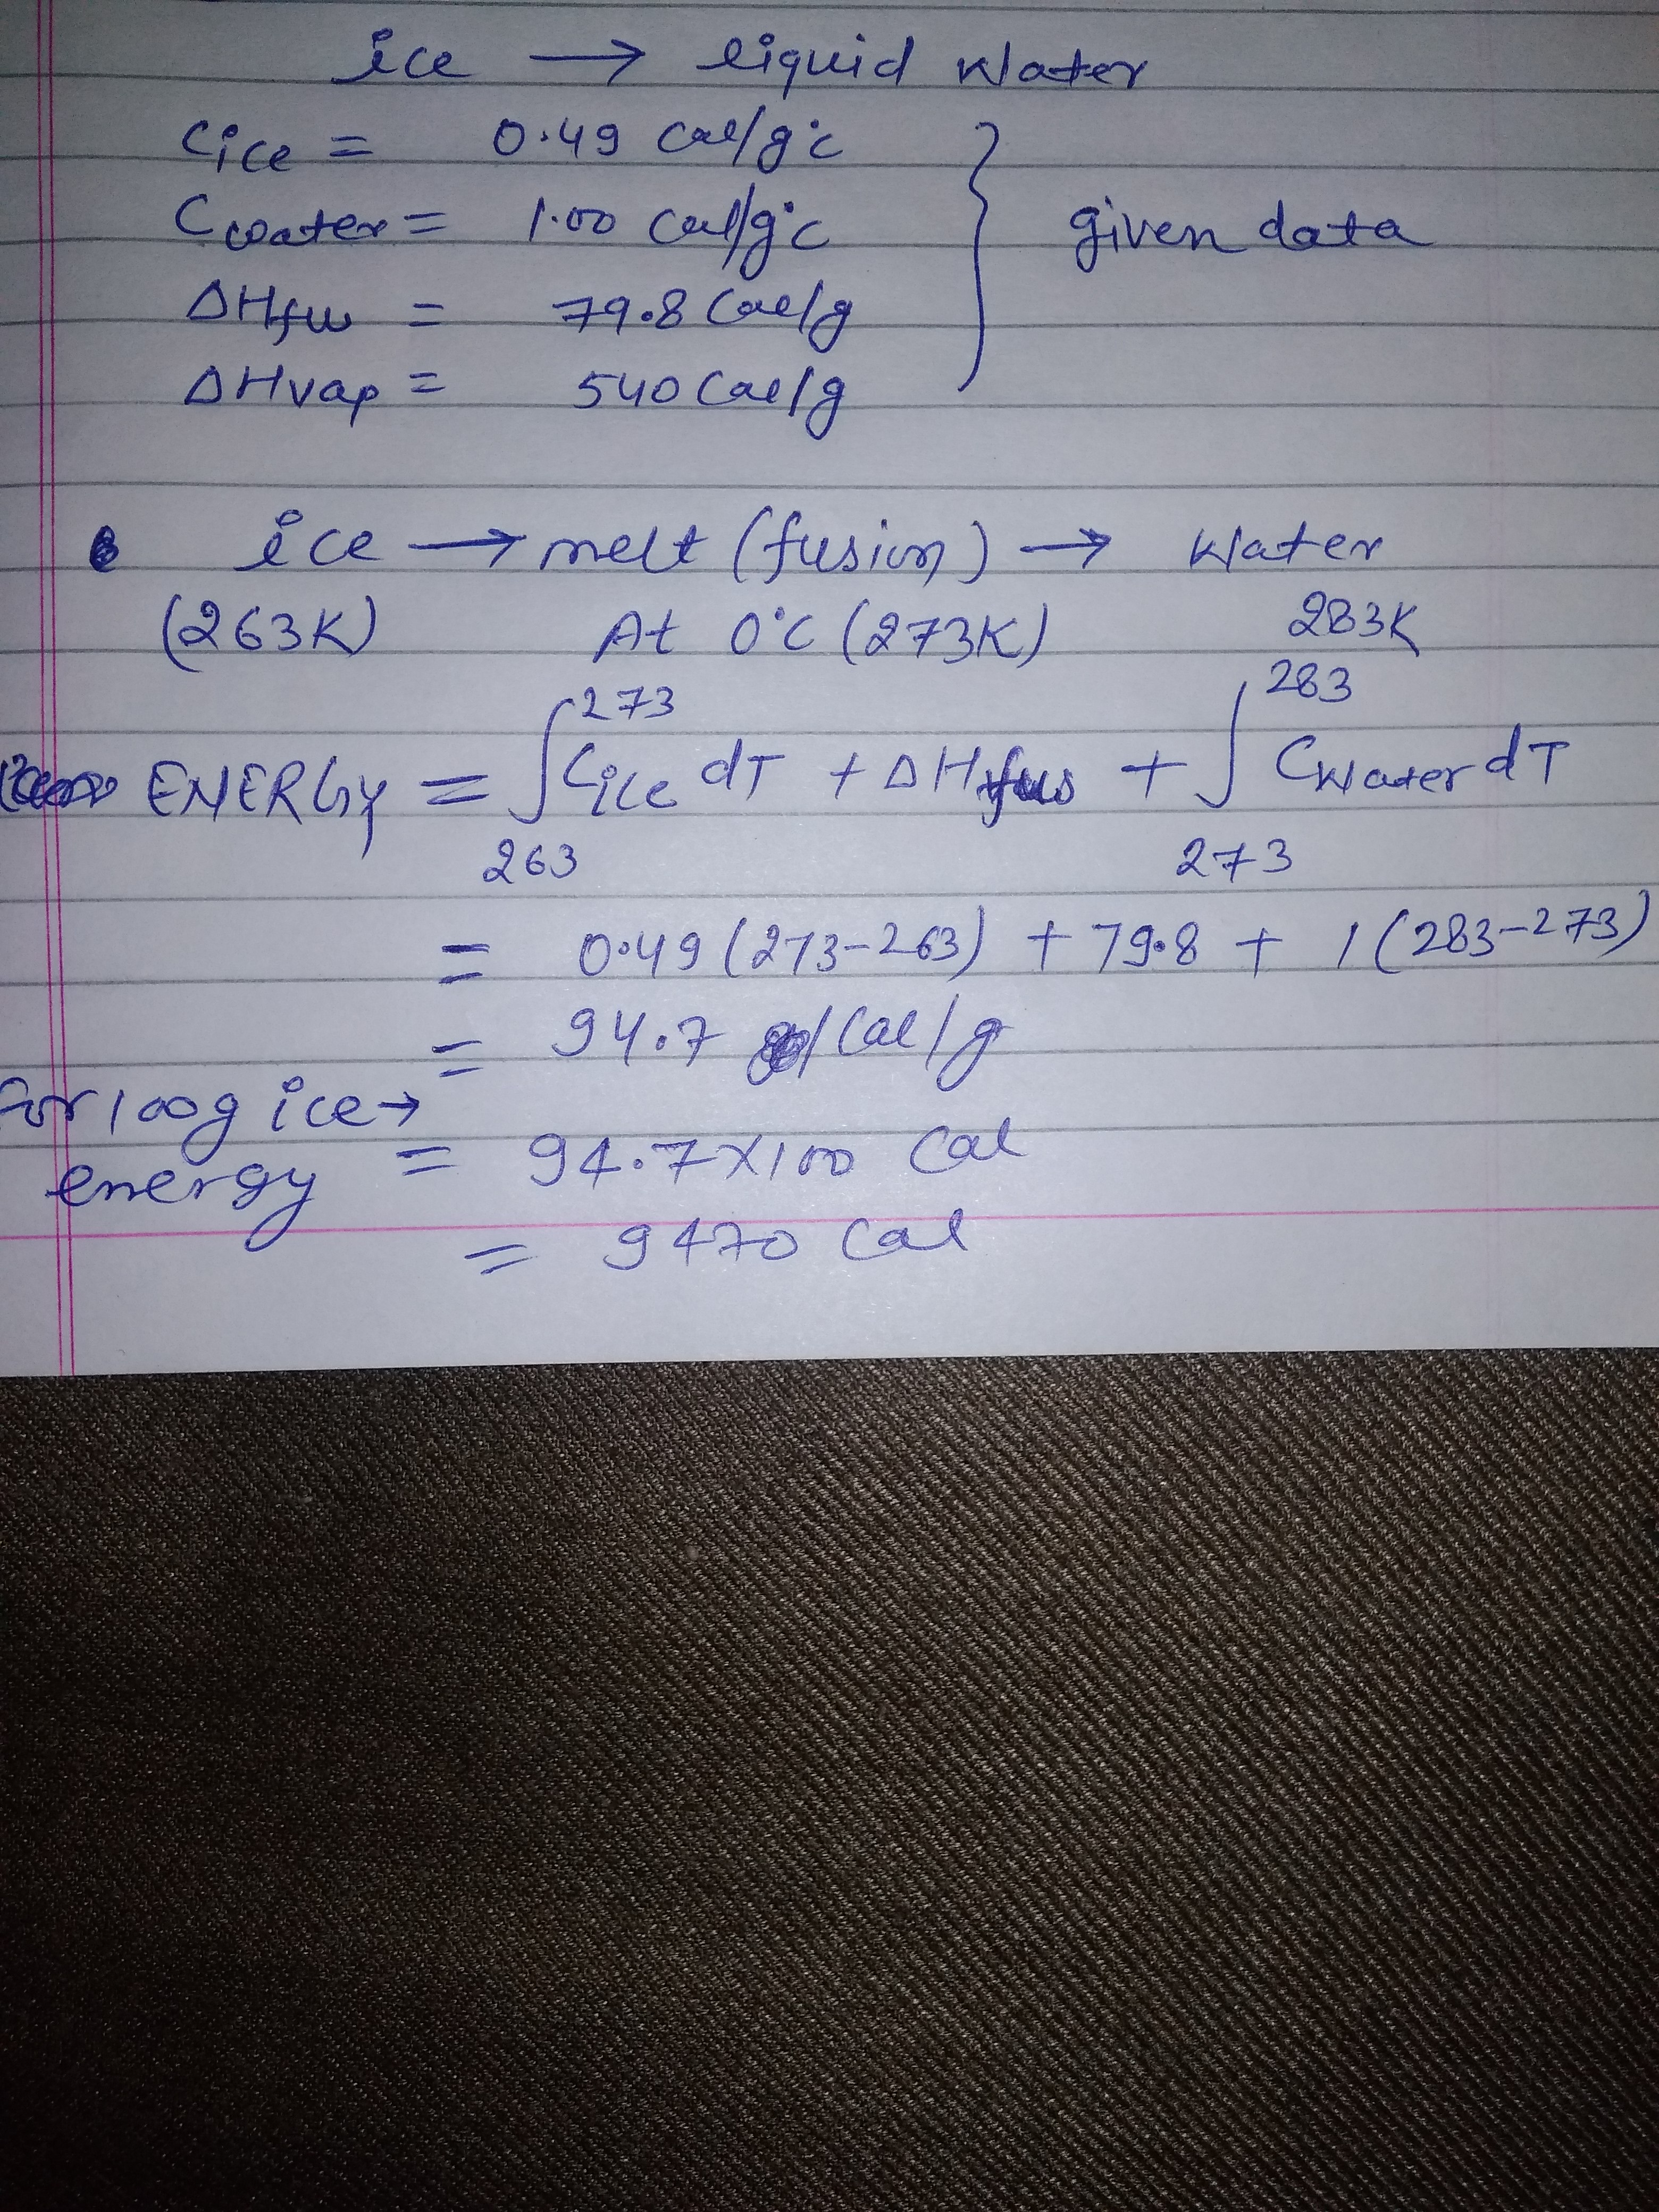 ice → liquid water
Cice = 0.49 Cal/g°C
Cwater = 1.00 Cal/g°C
ΔHfus = 79.8 Cal/g
ΔHvap = 540 Cal/g
} given data
ice → melt (fusion) → water
(263K) At 0°C (273K) 283K
ENERGY = ∫₂₆₃²⁷³ Cice dT + ΔHfus + ∫₂₇₃²⁸³ Cwater dT
= 0.49 (273-263) + 79.8 + 1 (283-273)
= 94.7 Cal/g
for 100g ice →
energy = 94.7 × 100 Cal
= 9470 Cal